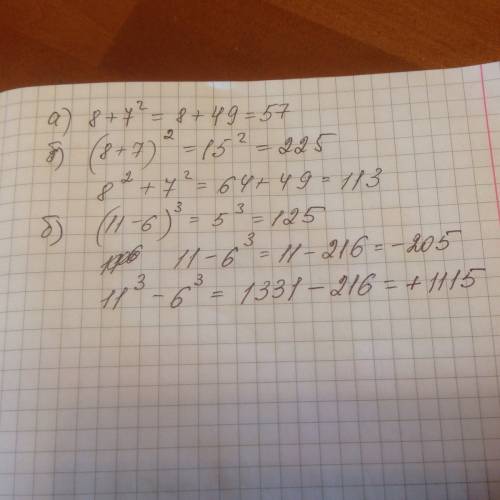 а) 8+7² = 8+49=57
б) (8+7)² = 15² = 225
8² + 7² = 64+49 = 113
б) (11-6)³ = 5³ = 125
11-6³ = 11-216 = -205
11³ - 6³ = 1331-216 = +1115